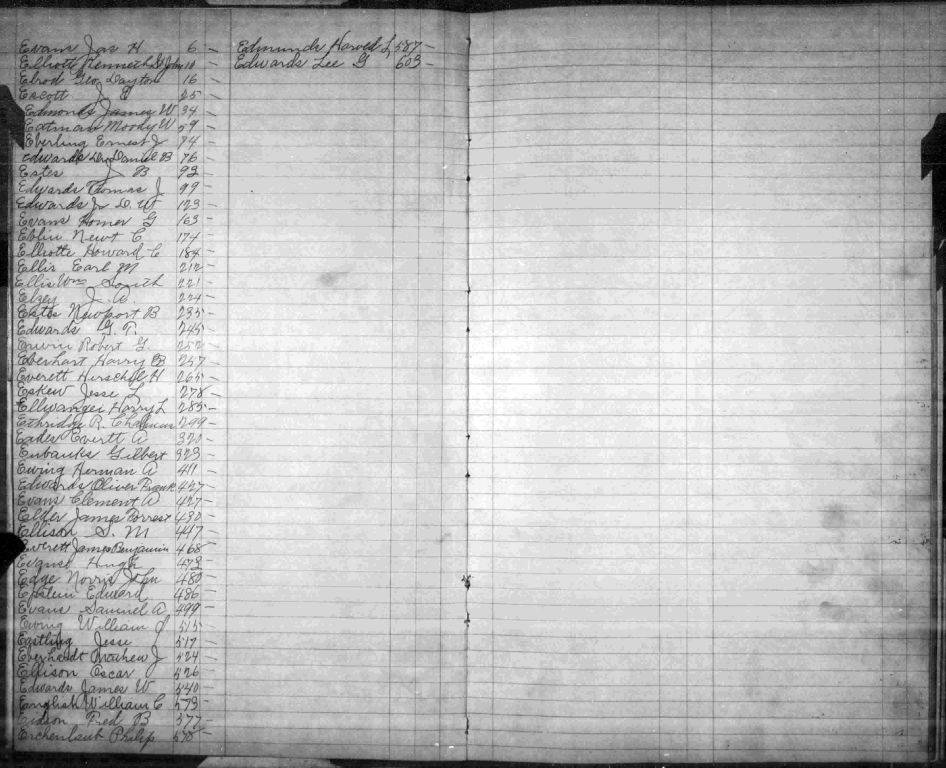 Evans Jas H 6 -
Elliott Kenneth 10 -
Elrod Geo Dayton 16 -
Escott J E 25 -
Edmonds James W 34 -
Eatman Moody W 59 -
Eberling Ernest J 74 -
Edwards Dr Daniel B 76 -
Estes J B 92 -
Edwards Thomas J 99 -
Edwards Jr D. W 123 -
Evans Homer G 163 -
Eblin Newt C 174 -
Elliotte Howard C 184 -
Ellis Earl M 212 -
Ellis Wm Smith 221 -
Elzey J. A. 224 -
Estes Newport B 235 -
Edwards G. T. 245 -
Erwin Robert G. 252 -
Eberhart Harry B 257 -
Everett Hirschel H 265 -
Eskew Jesse L 278 -
Ellwanger Harry L 285 -
Ethridge R. Chapman 299 -
Eades Evertt A 320 -
Eubanks Gilbert 323 -
Ewing Herman A 411 -
Edwards Oliver Frank 427 -
Evans Clement A 427 -
Elder James Forrest 430 -
Ellison S. M 447 -
Everett James Benjamin 468 -
Hugh 473 -
Edge Norris John 480 -
Epstein Edward 486 -
Evans Samuel A 499 -
Ewing William J 515 -
Eastling Jesse 517 -
Everhardt Mathew J 524 -
Ellison Oscar 526 -
Edwards James W 540 -
English William C 573 -
Eidson Fred B 577 -
Eichenlaub Philip 578 -
Edmunds Harved L 587 -
Edwards Lee G 603 -